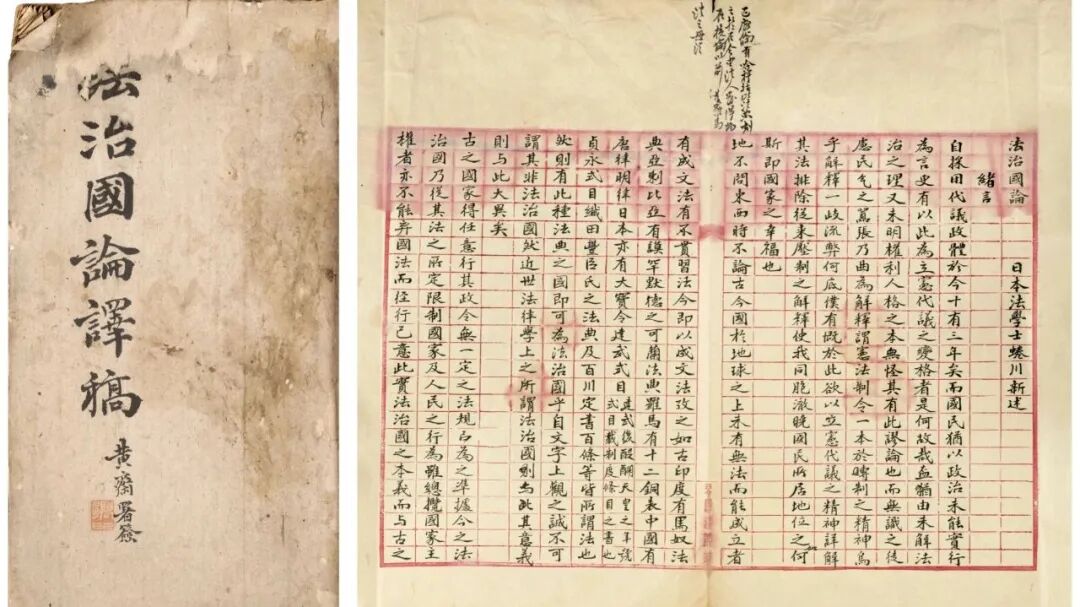 法治國論譯稿
黄署簽
法治國論 日本法學士蜷川新述
緒言
自採用代議政體於今十有三年矣而國民猶以政治未能實行
為言史有以此為立憲代議之變格者是何故哉盖猶由未解法
治之理又未明權利人格之本無怪其有此謬論也而無識之徒
慮民气之囂張乃曲為解釋謂憲法制令一本於專制之精神烏
乎解釋一歧流弊何底僕有慨於此欲以立憲代議之精神詳解
其法排除從來壓制之解釋使我同胞澈曉國民所居地位之何
斯即國家之幸福也
地不問東西時不論古今國於地球之上未有無法而能成立者
有成文法有不貫習法今即以成文法攷之如古印度有馬奴法
典亞剌比亞有謨罕默德之可蘭法典羅馬有十二銅表中國有
唐律明律日本亦有大寶令建武式目建武後醍醐天皇之年號式目裁制度條目之書也
貞永式目織田豐臣氏之法典及百川定書百條等皆所謂法也
然則有此種法典之國即可為法治國乎自文字上觀之誠不可
謂其非法治國然近世法律學上之所謂法治國則与此其意義
則与此大異矣
古之國家得任意行其政令無一定之法規以為之準據今之法
治國乃從其法之所定限制國家及人民之行為雖總攬國家主
權者亦不能弃國法而任行己意此實法治國之本義而与古之